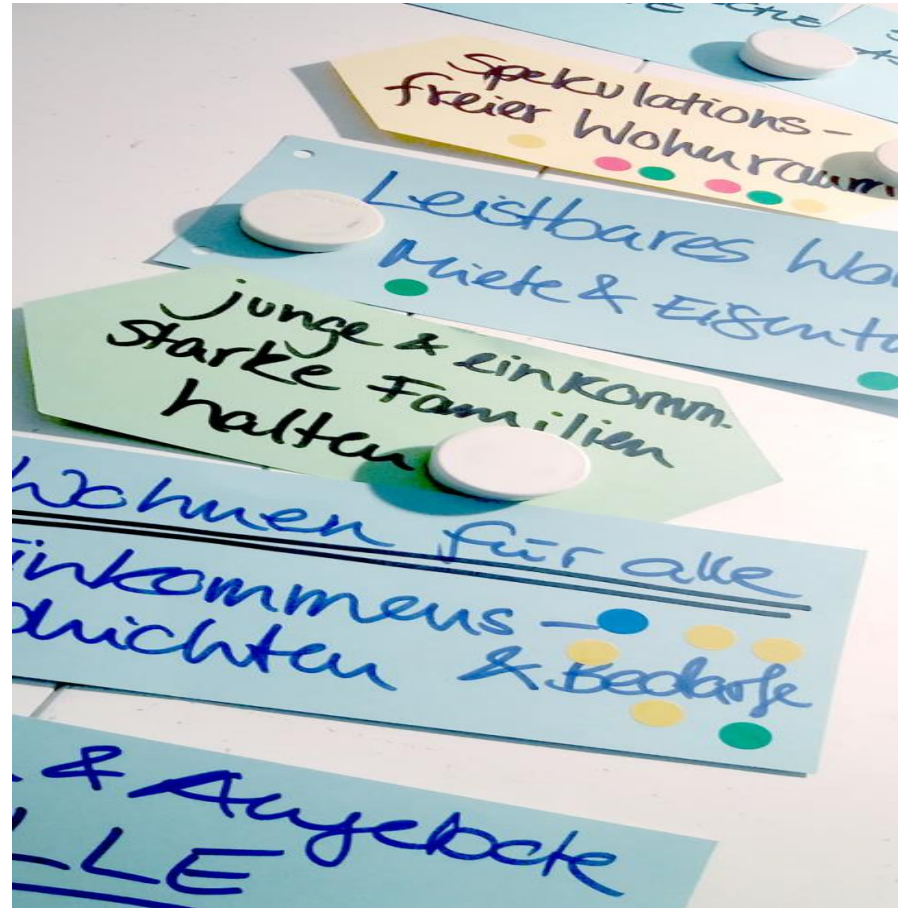 Spekulations-
freier Wohnraum
Leistbares Wo
Miete & Eigent
junge & einkomm.
starke Familien
halten
Wohnen für alle
Einkommens-
schichten & Bedarfe
& Angebote
LLE